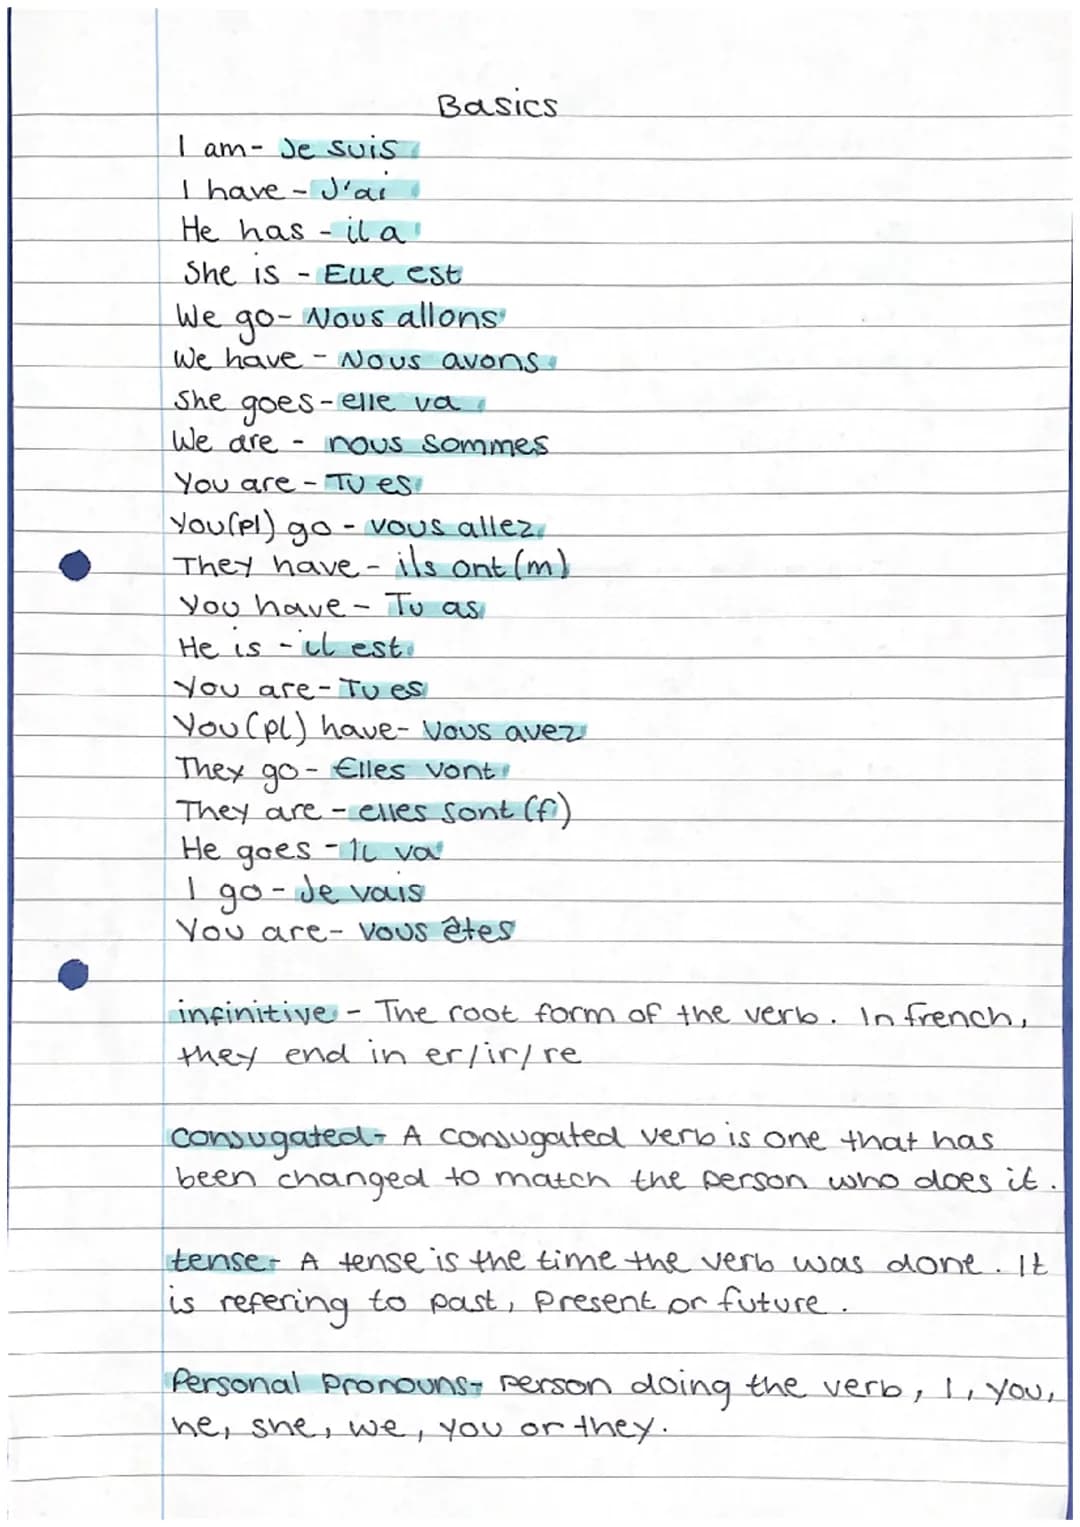 Basics
I am - Je suis
I have - J'ai
He has - il a
She is - Elle est
We go - Nous allons
We have - Nous avons
She goes - elle va
We are - nous sommes
You are - Tu es
You(pl) go - vous allez
They have - ils ont (m)
You have - Tu as
He is - il est
You are - Tu es
You (pl) have - Vous avez
They go - Elles vont
They are - elles sont (f)
He goes - Il va
I go - Je vais
You are - vous êtes
infinitive - The root form of the verb. In french,
they end in er/ir/re
conjugated - A conjugated verb is one that has
been changed to match the person who does it.
tense - A tense is the time the verb was done. It
is refering to past, present or future.
Personal pronouns - person doing the verb, I, you,
he, she, we, you or they.